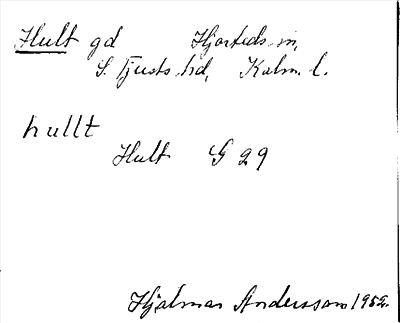 Hult gd Hjorteds sn,
S. Tjusts hd, Kalm. l.
hullt
Hult G 29
Hjalmar Andersson 1952.